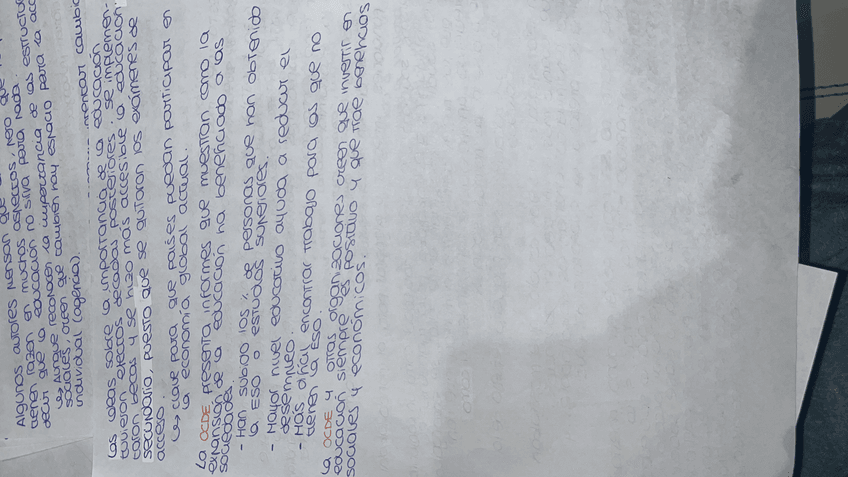 Algunos autores piensan que
tienen razón en muchos aspectos, pero que
decir que la educación no sirva para nada.
↳ Aunque reconocen la importancia de las estructuras
sociales, creen que también hay espacio para la
individual (agencia).
Las ideas sobre la importancia de la educación
tuvieron efectos. décadas posteriores, se implemen-
taron becas y se hizo más accesible la educación
secundaria, puesto que se quitaron los exámenes de
acceso.
↳ clave para que países puedan participar en
la economía global actual.
La OCDE presenta informes que muestran como la
expansión de la educación ha beneficiado a las
sociedades.
- Han subido los % de personas que han obtenido
la ESO o estudios superiores.
- Mayor nivel educativo ayuda a reducir el
desempleo.
- Más difícil encontrar trabajo para los que no
tienen la ESO.
La OCDE y otras organizaciones creen que invertir en
educación siempre es positivo y que trae beneficios
sociales y económicos.